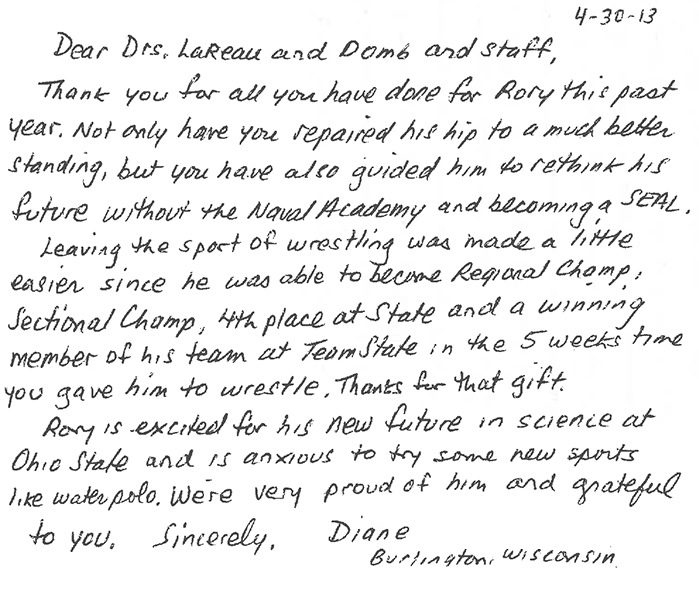 4-30-13
Dear Drs. LaReau and Domb and staff,
Thank you for all you have done for Rory this past
year. Not only have you repaired his hip to a much better
standing, but you have also guided him to rethink his
future without the Naval Academy and becoming a SEAL.
Leaving the sport of wrestling was made a little
easier since he was able to become Regional Champ,
Sectional Champ, 4th place at State and a winning
member of his team at Team State in the 5 weeks time
you gave him to wrestle. Thanks for that gift.
Rory is excited for his new future in science at
Ohio State and is anxious to try some new sports
like water polo. We're very proud of him and grateful
to you. Sincerely, Diane
Burlington, Wisconsin